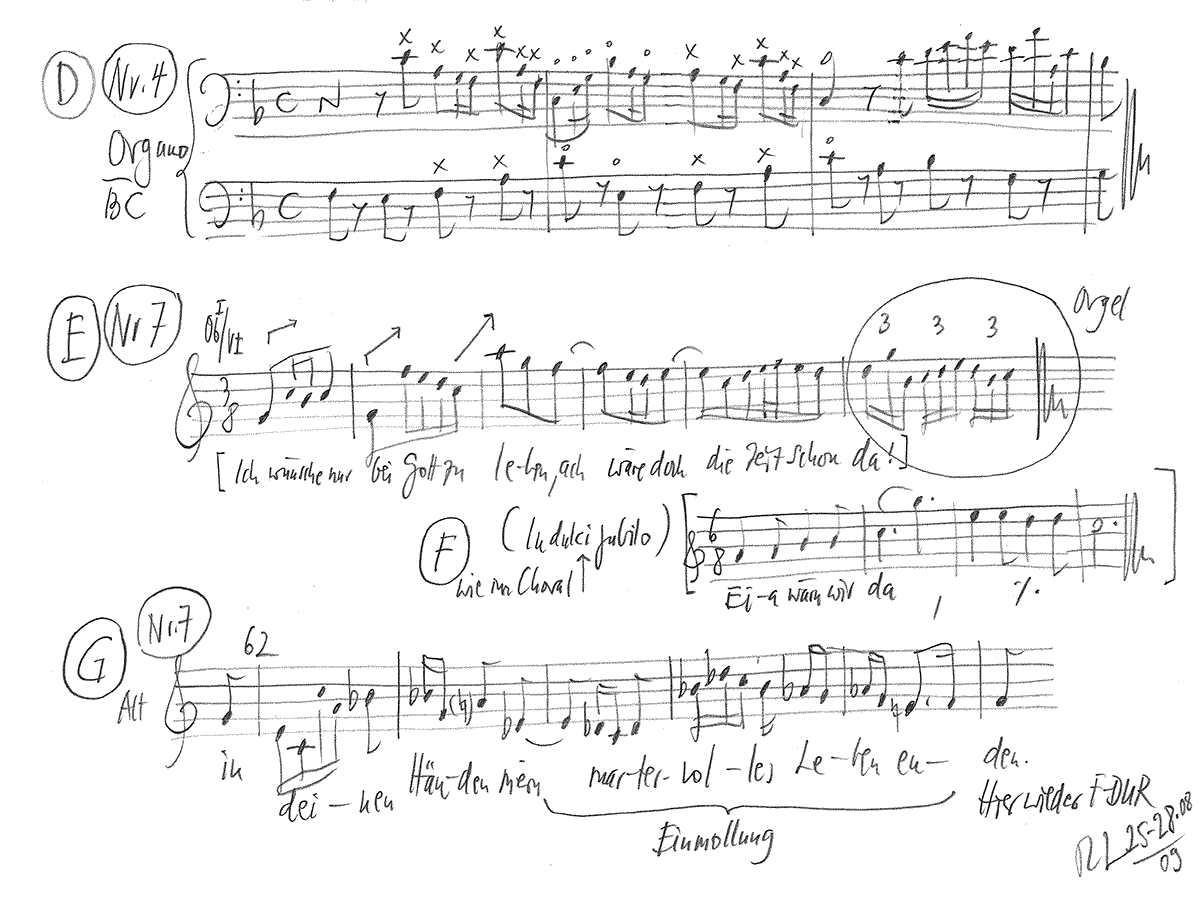 D Nr.4
Organo
BC
C
C
E Nr 7
Ob I/VI
3 3 3
Orgel
3
8
[Ich wünsche nur bei Gott zu le-ben, ach wäre doch die Zeit schon da!]
F (In dulci jubilo)
wie im Choral ↑
6
8
Ei-a wärn wir da , ·/.
G Nr.7
62
Alt
in dei-nen Hän-den mein mar-ter-vol-les Le-ben en-den.
Einmollung
Hier wieder F-DUR
RL 25-28.08
09